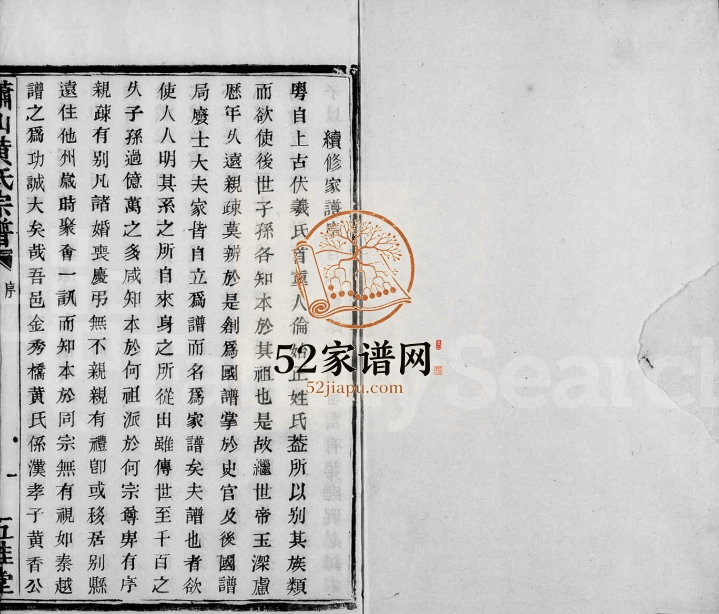 續修家譜
粵自上古伏羲氏首重人倫始正姓氏蓋所以別其族類
而欲使後世子孫各知本於其祖也是故繼世帝王深慮
歷年久遠親疎莫辨於是創為國譜掌於史官及後國譜
局廢士大夫家皆自立為譜而名為家譜矣夫譜也者欲
使人人明其系之所自來身之所從出雖傳世至千百之
久子孫過億萬之多咸知本於何祖派於何宗尊卑有序
親疎有別凡諸婚喪慶弔無不親親有禮卽或移居別縣
遠住他州歲時聚會一訊而知本於同宗無有視如秦越
譜之為功誠大矣哉吾邑金秀橋黃氏係漢孝子黃香公
蕭山黃氏宗譜
序
一
五桂堂
52家谱网
52jiapu.com